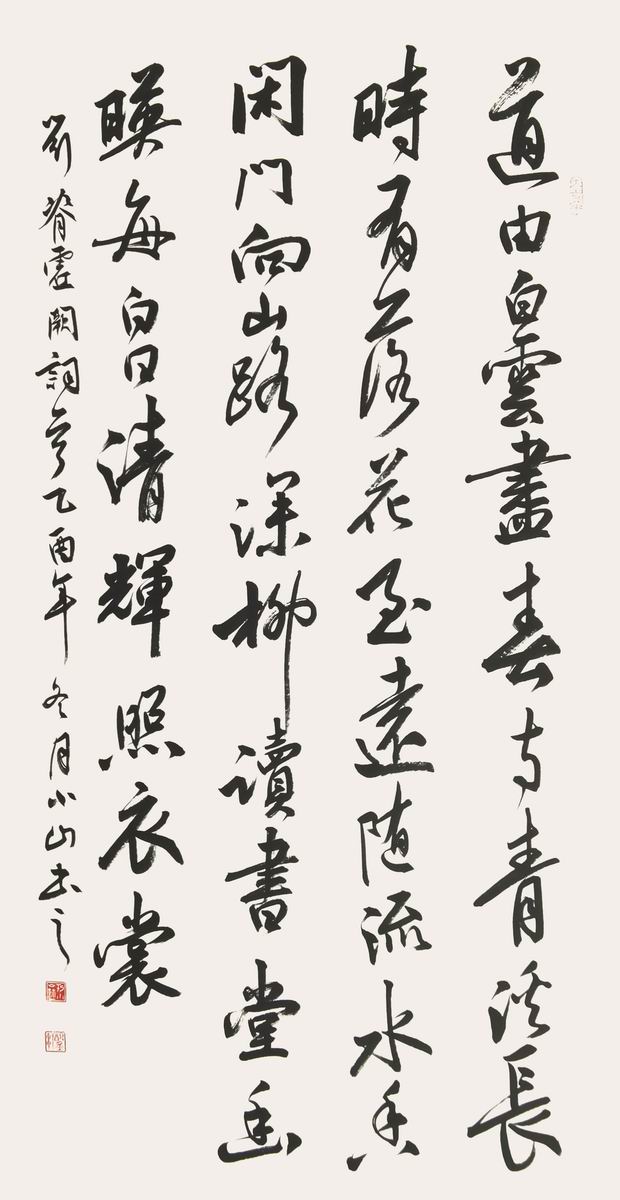 道由白雲盡春与青溪長
時有落花至遠随流水香
閑門向山路深柳讀書堂幽
暎每白日清輝照衣裳
劉眘虛闕詞乙酉年冬月小山书之